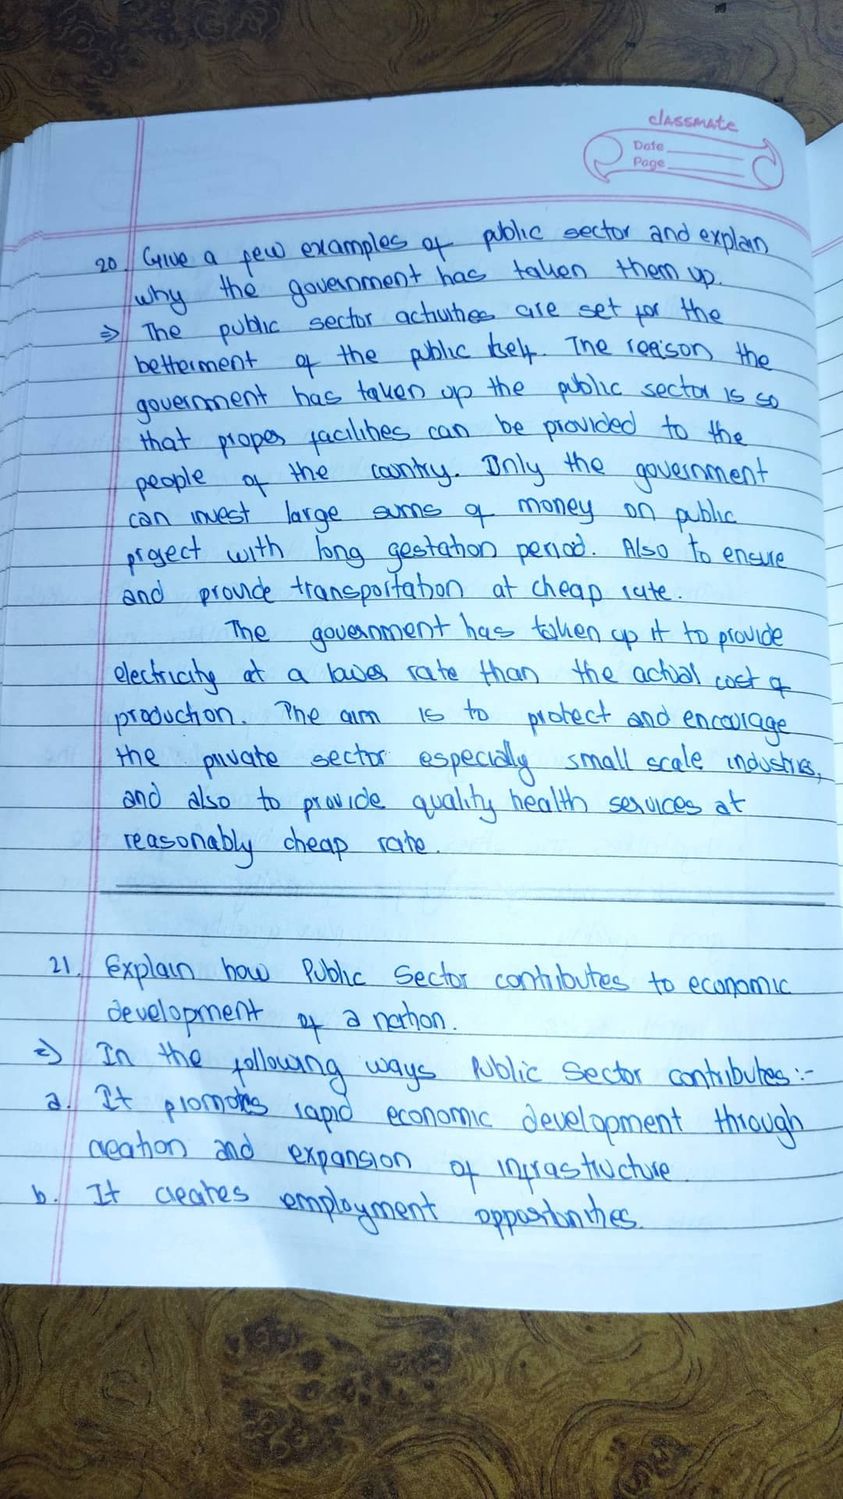 classmate
Date
Page
20. Give a few examples of public sector and explain
why the government has taken them up.
⇒ The public sector activities are set for the
betterment of the public itself. The reason the
government has taken up the public sector is so
that proper facilities can be provided to the
people of the country. Only the government
can invest large sums of money on public
project with long gestation period. Also to ensure
and provide transportation at cheap rate.
The government has taken up it to provide
electricity at a lower rate than the actual cost of
production. The aim is to protect and encourage
the private sector especially small scale industries,
and also to provide quality health services at
reasonably cheap rate.
21. Explain how Public Sector contributes to economic
development of a nation.
⇒ In the following ways Public Sector contributes:-
a. It promotes rapid economic development through
creation and expansion of infrastructure.
b. It creates employment opportunities.